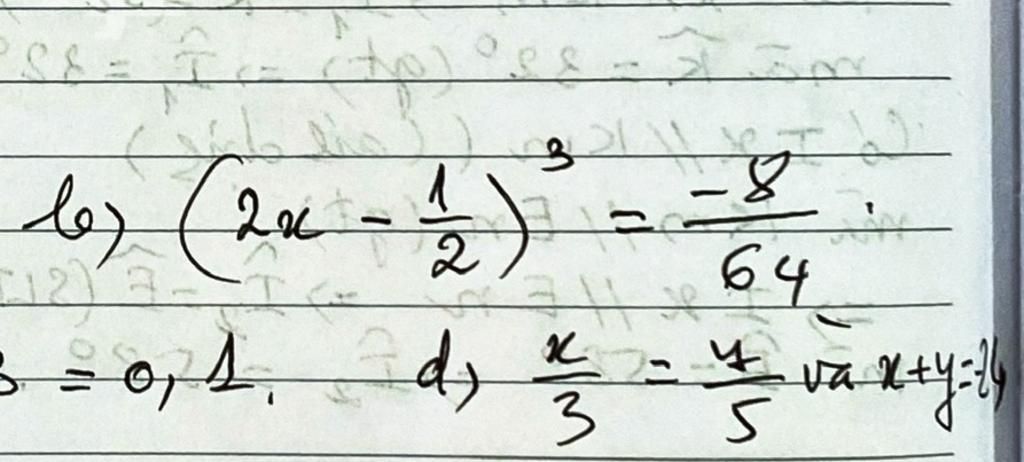 b) (2x - 1/2)³ = -8/64.
= 0,1. d) x/3 = y/5 và x+y=24